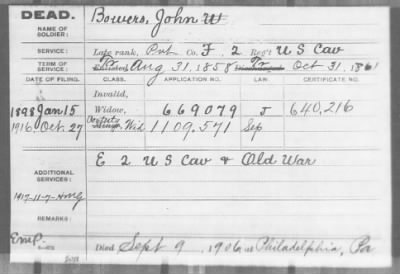 DEAD. Bowers, John W
NAME OF SOLDIER:
SERVICE: Late rank, Pvt Co. F, 2 Reg't U S Cav
TERM OF SERVICE: Enlisted Tr Aug. 31, 1858 Discharged Tr Oct 31, 1861
DATE OF FILING. CLASS. APPLICATION NO. LAW. CERTIFICATE NO.
Invalid,
1898 Jan 15 Widow, 669079 J 640,216
1916 Oct. 27 Wid 1109.571 Sep
ADDITIONAL SERVICES: E 2 U S Cav & Old War
1917-11-7
REMARKS:
Died Sept 9, 1906 at Philadelphia, Pa